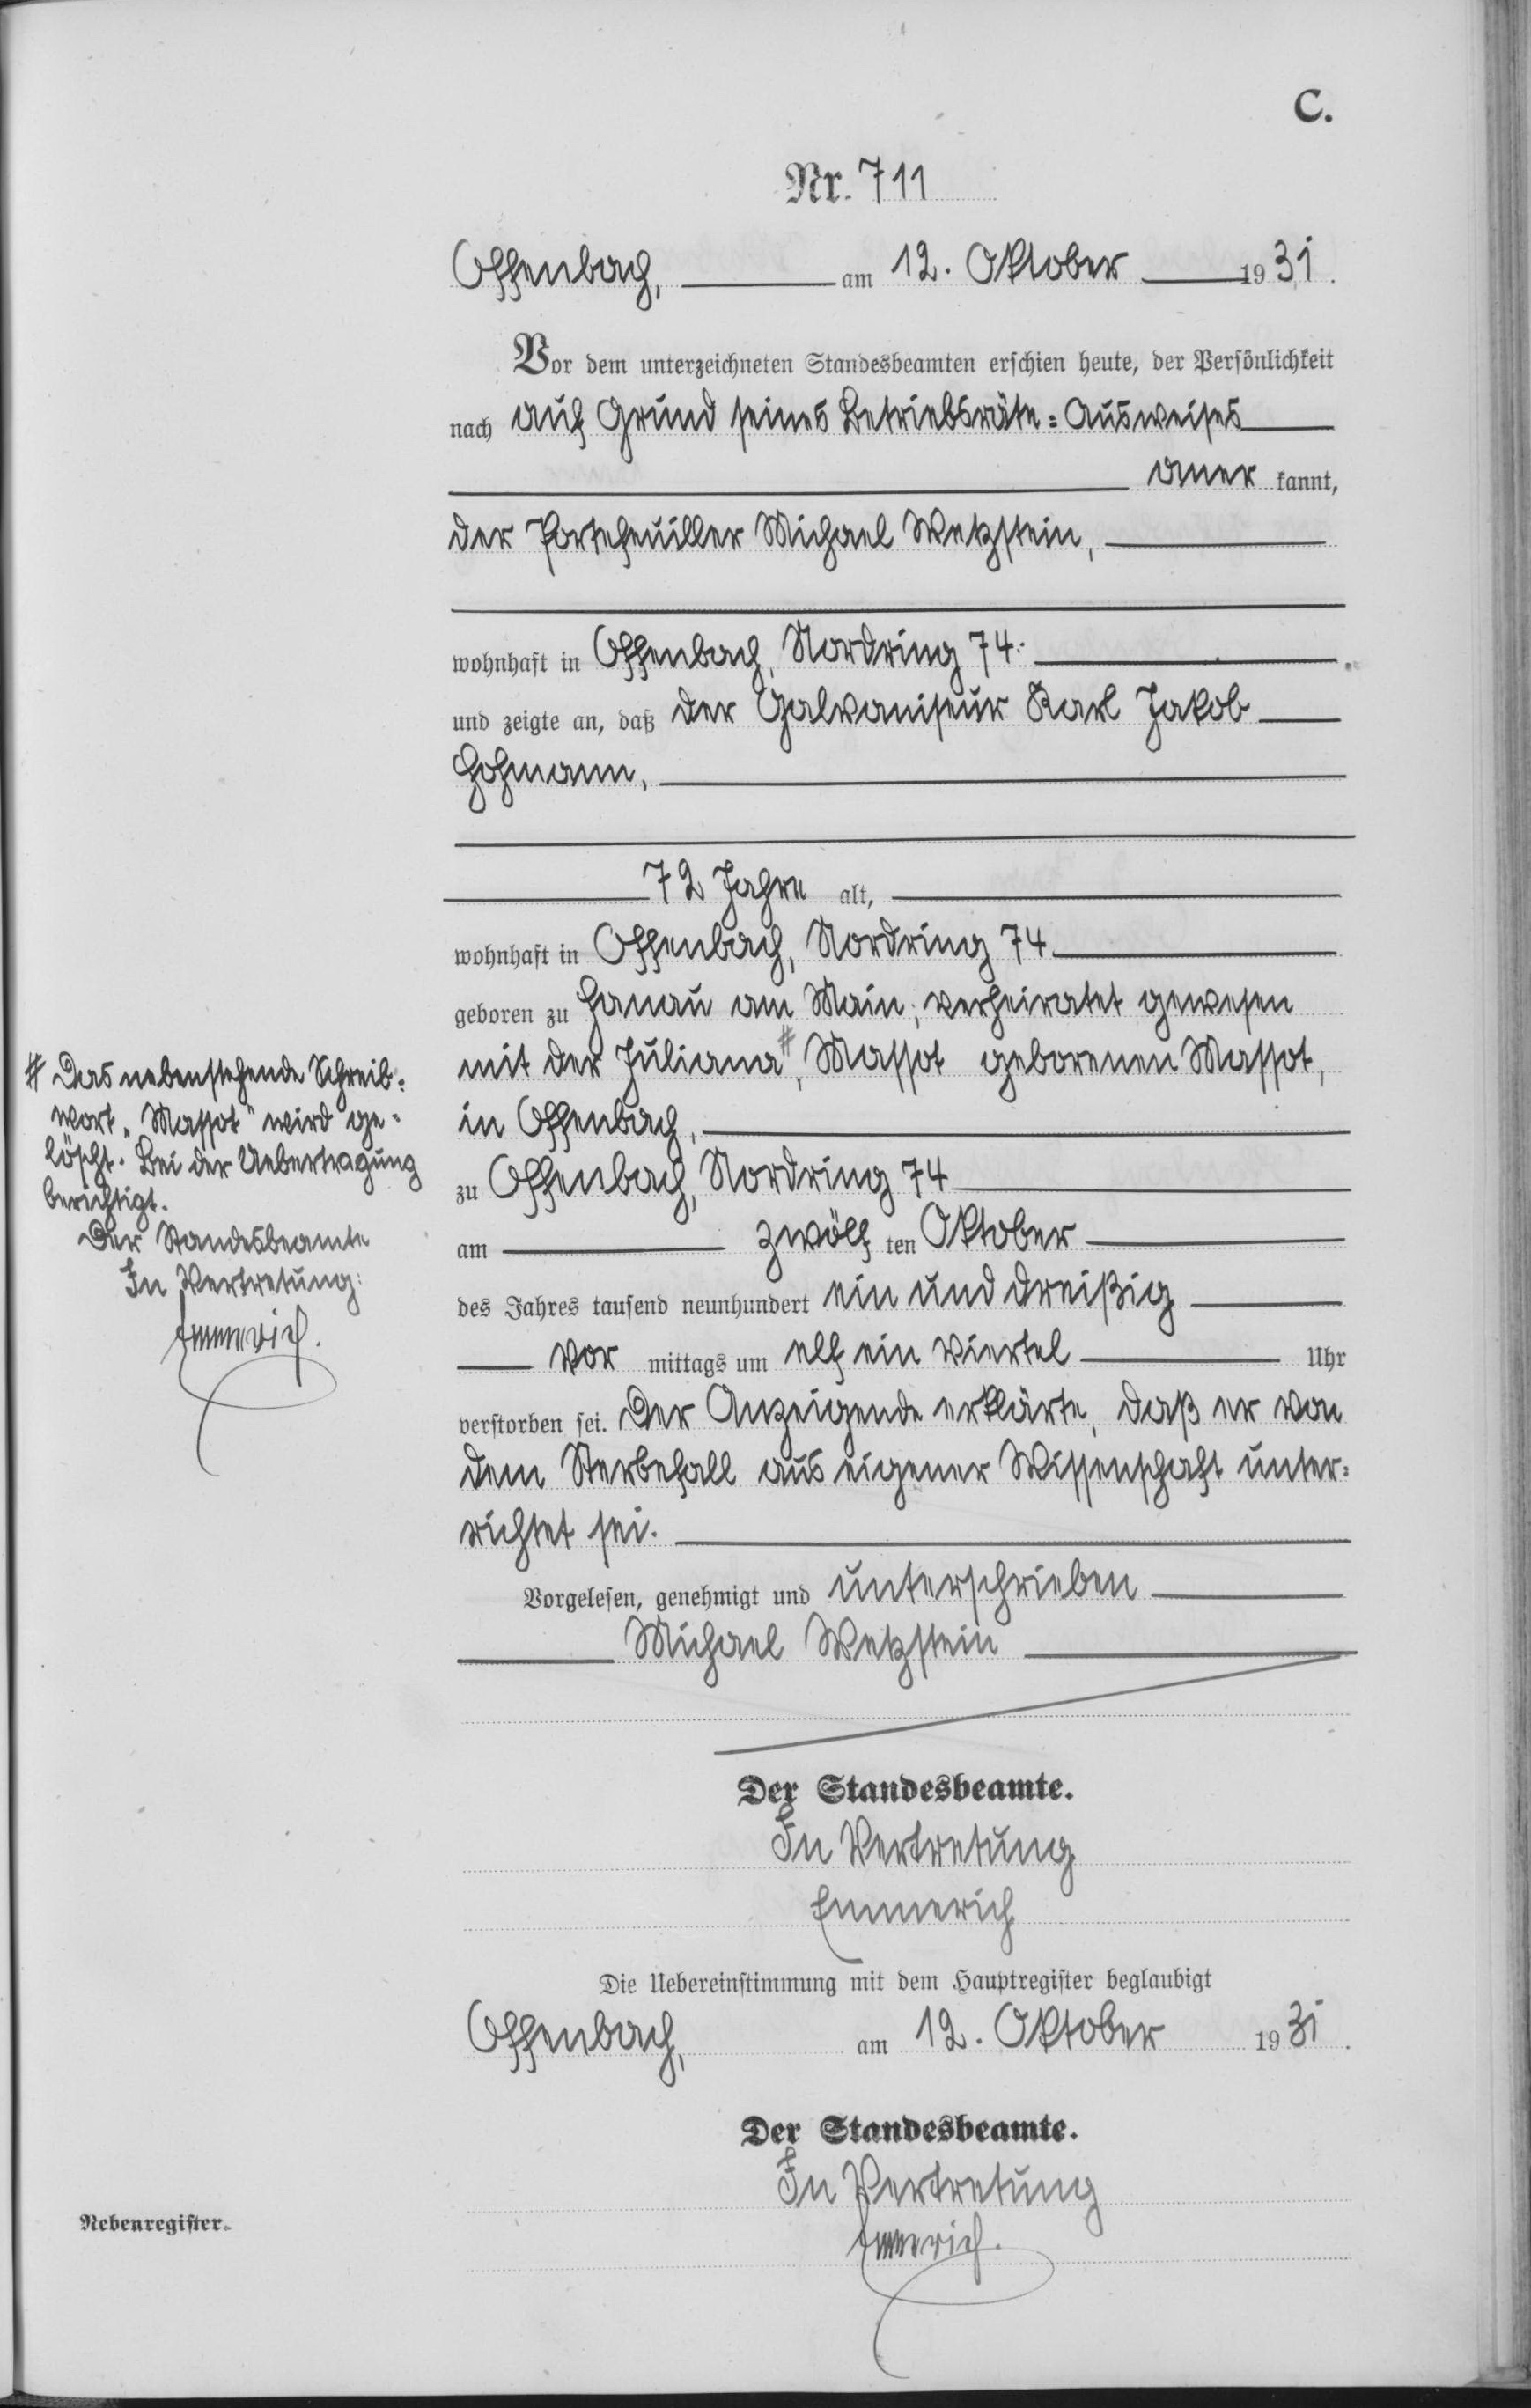 C.
Nr. 711
Offenbach, am 12. Oktober 1931.
Vor dem unterzeichneten Standesbeamten erschien heute, der Persönlichkeit
nach auf Grund seines Betriebsräte=Ausweises
aner kannt,
der Portefeuiller Michael Wetzstein,
wohnhaft in Offenbach, Nordring 74.
und zeigte an, daß der Galvaniseur Karl Jakob
Hohmann,
72 Jahre alt,
wohnhaft in Offenbach, Nordring 74
geboren zu Hanau am Main, verheiratet gewesen
mit der Juliana #, Massot geborenen Massot,
in Offenbach,
zu Offenbach, Nordring 74
am zwölf ten Oktober
des Jahres tausend neunhundert ein und dreißig
vor mittags um elf ein viertel Uhr
verstorben sei. Der Anzeigende erklärte, daß er von
dem Sterbefall aus eigener Wissenschaft unter=
richtet sei.
Vorgelesen, genehmigt und unterschrieben
Michael Wetzstein
Der Standesbeamte.
In Vertretung
Emmerich
Die Uebereinstimmung mit dem Hauptregister beglaubigt
Offenbach, am 12. Oktober 1931.
Der Standesbeamte.
In Vertretung
Emmerich.
# Das nebenstehende Schreib=
wort „Massot" wird ge=
löscht. Bei der Uebertragung
berichtigt.
Der Standesbeamte
In Vertretung:
Emmerich.
Nebenregister.